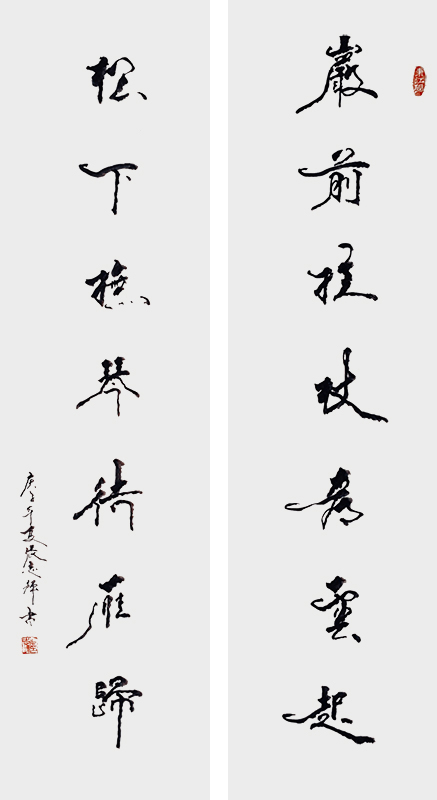 巖前拄杖看雲起
松下撫琴待雁歸
庚子年夏